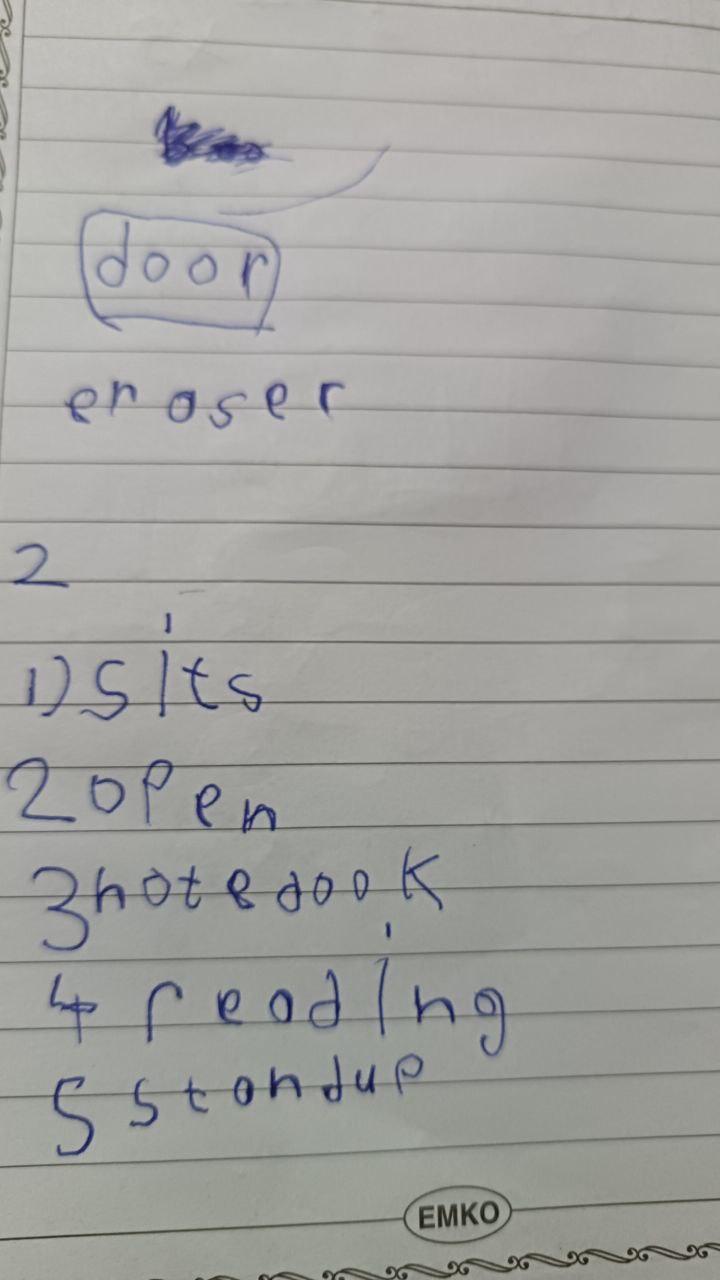 door
eraser
2
1) sits
2 open
3 notedook
4 reading
5 standup
EMKO